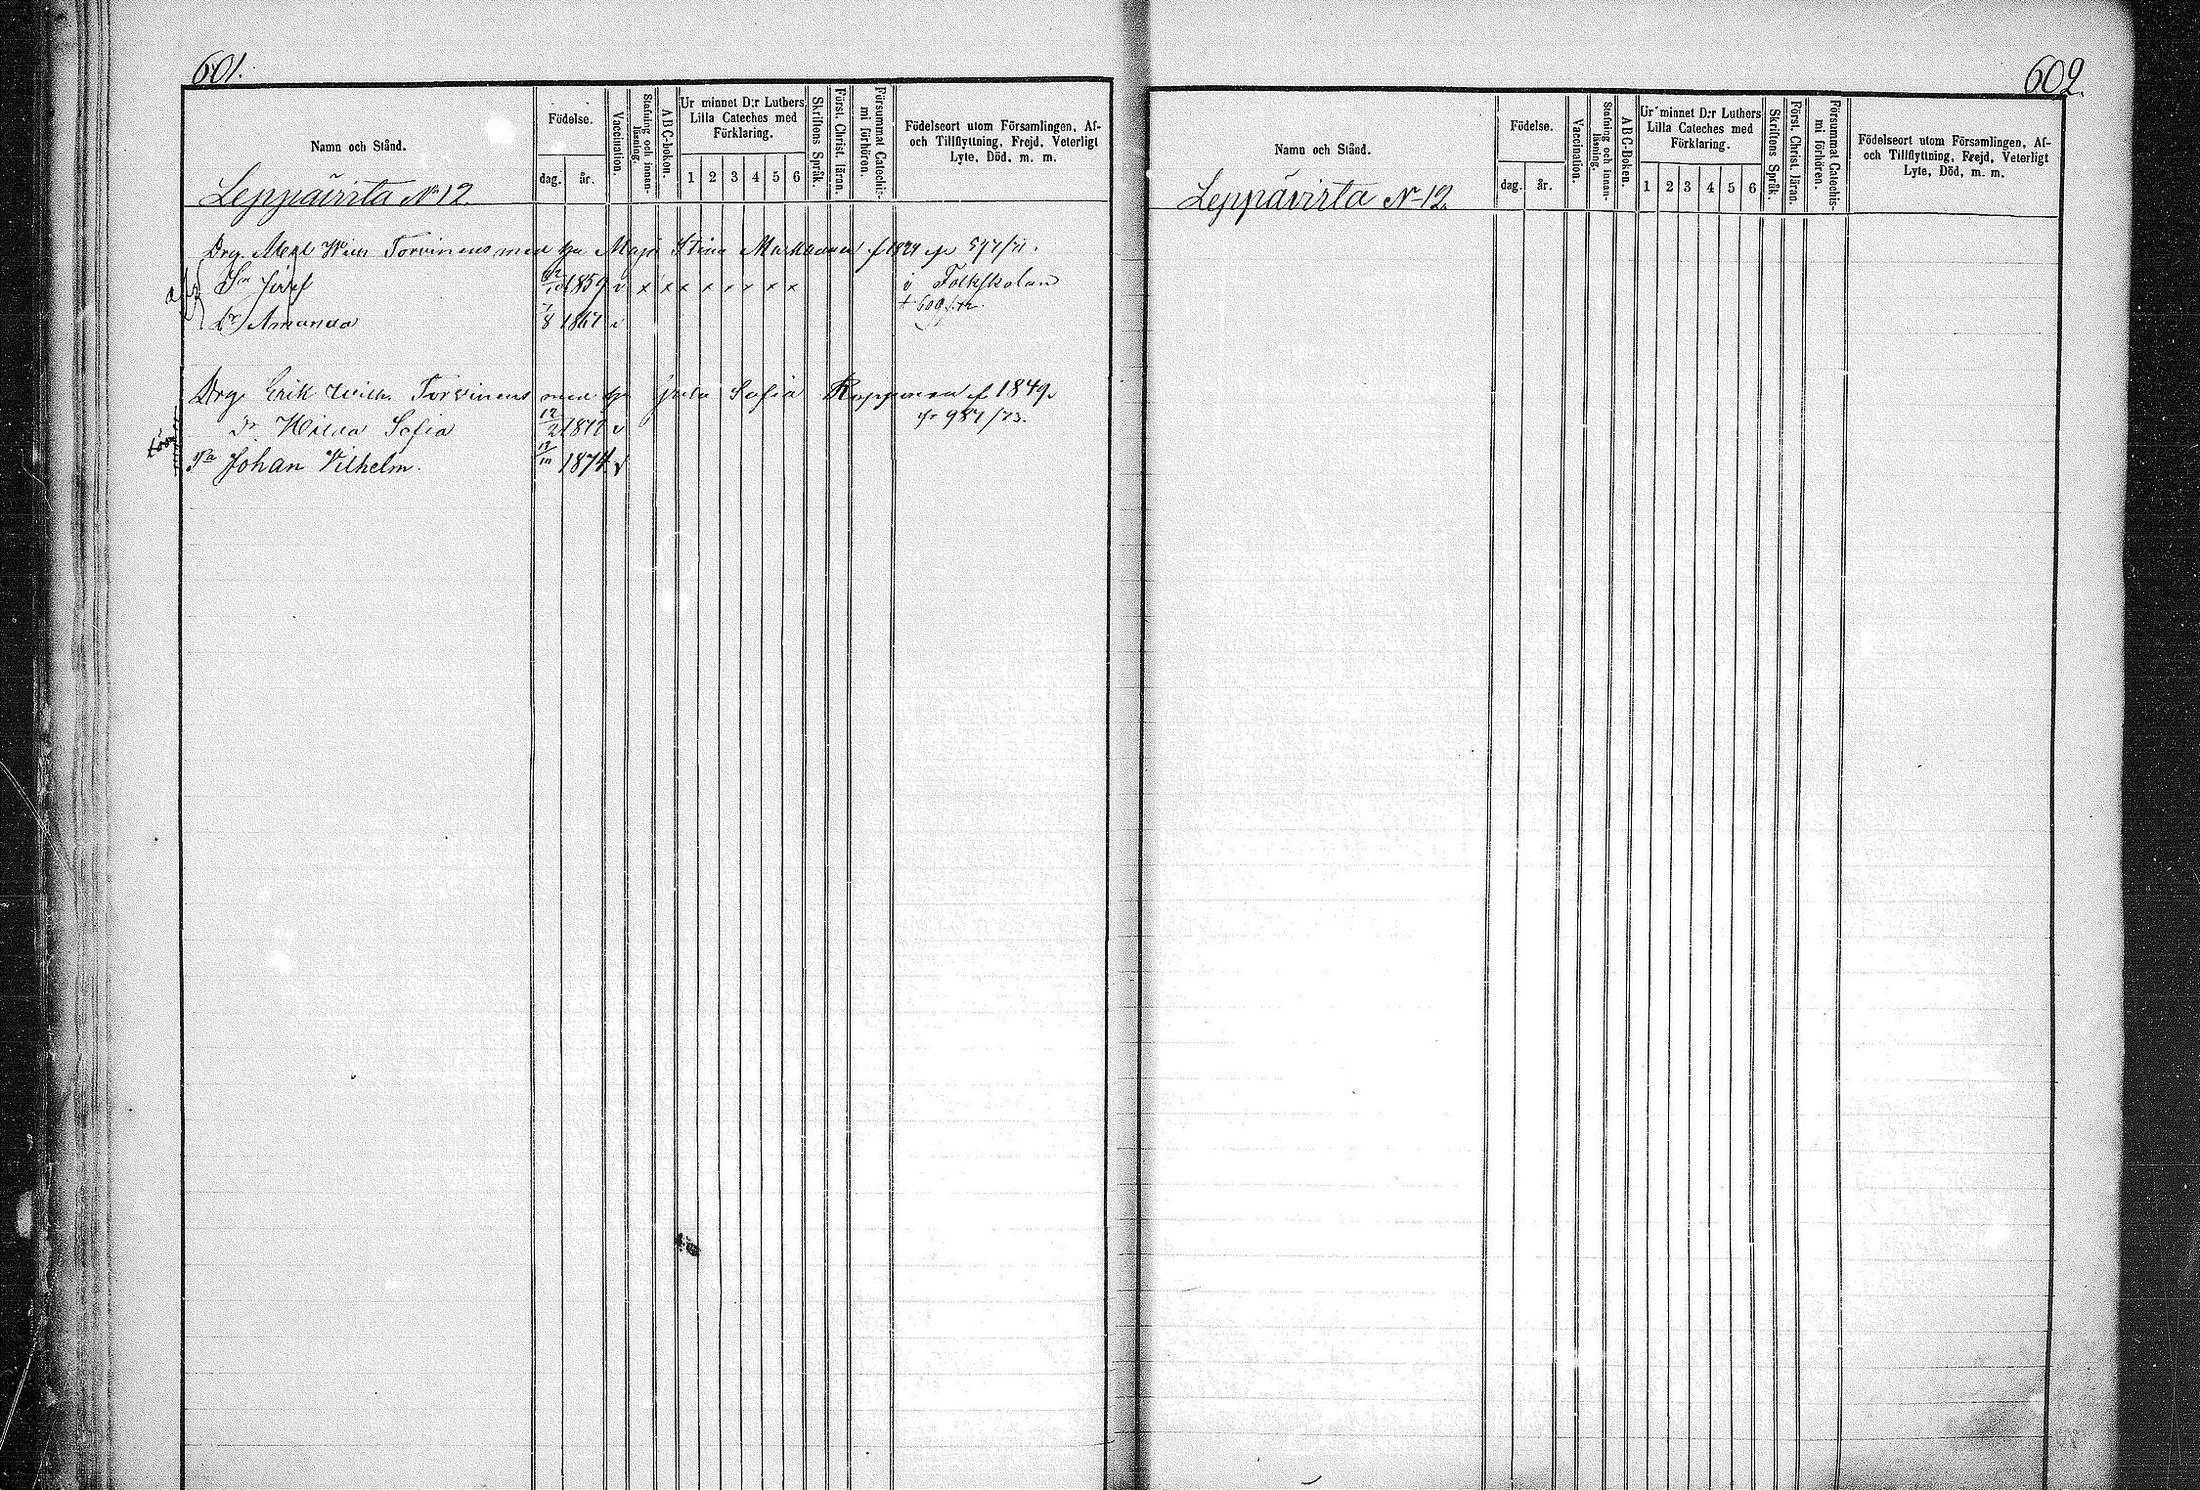 601.
Namn och Stånd.
Födelse.
dag.
år.
Vaccination.
Stafning och innan-
läsning.
ABC-boken.
Ur minnet D:r Luthers
Lilla Cateches med
Förklaring.
1 2 3 4 5 6
Skriftens Språk.
Först. Christ. läran.
Försummat Catechis-
mi förhören.
Födelseort utom Församlingen, Af-
och Tillflyttning, Frejd, Veterligt
Lyte, Död, m. m.
Leppävirta No 12.
Drg. Wilh Torvinens med Maja Stina f 1824
Sn Josef 1859 v x x x x x x x x i Folkskolan
Dr Amanda 8 1867 v
Drg. Erik Wilh. Torvinens med Sofia Ropponen f 1849.
Dr Hilda Sofia 12/2 187 v 987/73.
Sn Johan Vilhelm. 1874. v
602.
Namn och Stånd.
Födelse.
dag.
år.
Vaccination.
Stafning och innan-
läsning.
ABC-Boken.
Ur minnet D:r Luthers
Lilla Cateches med
Förklaring.
1 2 3 4 5 6
Skriftens Språk.
Först. Christ. läran.
Försummat Catechis-
mi förhören.
Födelseort utom Församlingen, Af-
och Tillflyttning, Frejd, Veterligt
Lyte, Död, m. m.
Leppävirta No 12.